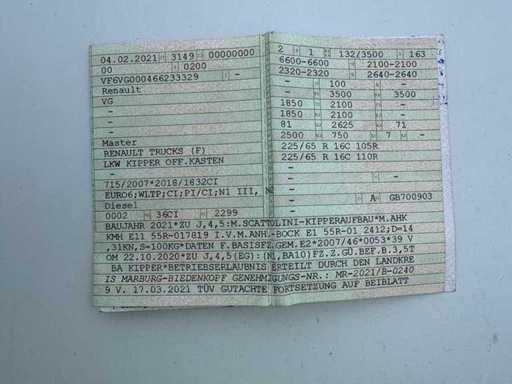 04.02.2021 3149 00000000
00 0200
VF6VG000466233329 -
Renault
VG
-
-
-
Master
RENAULT TRUCKS (F)
LKW KIPPER OFF.KASTEN
-
715/2007*2018/1832CI
EURO6;WLTP;CI;PI/CI;N1 III,
Diesel
0002 36CI 2299
2 1 132/3500 163
6600-6600 2100-2100
2320-2320 2640-2640
- 100 -
- 3500 3500
1850 2100 -
1850 2100 -
81 2625 71
2500 750 7 -
225/65 R 16C 105R
225/65 R 16C 110R
-
-
-
- A GB700903
-
BAUJAHR 2021*ZU J,4,5:M.SCATTOLINI-KIPPERAUFBAU*M.AHK
KMH E11 55R-017819 I.V.M.ANH.-BOCK E1 55R-01 2412;D=14
,31KN,S=100KG*DATEN F.BASISFZ.GEM.E2*2007/46*0053*39 V
OM 22.10.2020*ZU J,4,5(EG):(N1,BA10)FZ.Z.GÜ.BEF.B.3,5T
BA KIPPER*BETRIEBSERLAUBNIS ERTEILT DURCH DEN LANDKRE
IS MARBURG-BIEDENKOPF GENEHMIGUNGS-NR.: MR-2021/B-0240
9 V. 17.03.2021 TÜV GUTACHTE FORTSETZUNG AUF BEIBLATT